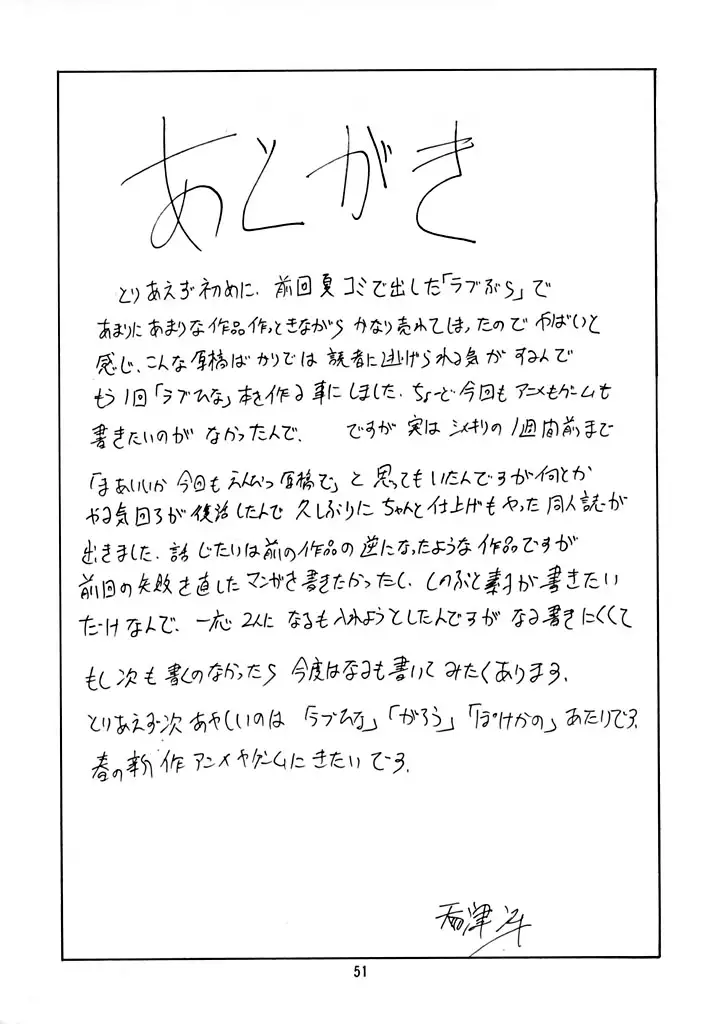 あとがき
とりあえず初めに、前回夏コミで出した「ラブぶら」で
あまりにあまりな作品作っときながら かなり売れてしまったので やばいと
感じ、こんな原稿ばかりでは 読者に逃げられる気がするんで
もう1回「ラブひな」本を作る事にしました。ちょーど今回も アニメもゲームも
書きたいのが なかったんで、 ですが 実は シメキリの 1週間前まで
「まあいいか 今回も えんぴつ原稿で」と 思ってもいたんですが何とか
やる気回ろが復活したんで 久しぶりに ちゃんと仕上げもやった 同人誌が
出きました。話じたいは前の作品の逆になったような作品ですが
前回の失敗を直したマンガを書きたかったし、しのぶと素子が書きたい
だけなんで、一応2人に なるも入れようとしたんですが なる書きにくくて
もし次も書くのなかったら 今度はなるも書いてみたくあります。
とりあえず次 あやしいのは 「ラブひな」「がろう」「ぽけかの」あたりです。
春の新作アニメやゲームにきたいです。
51